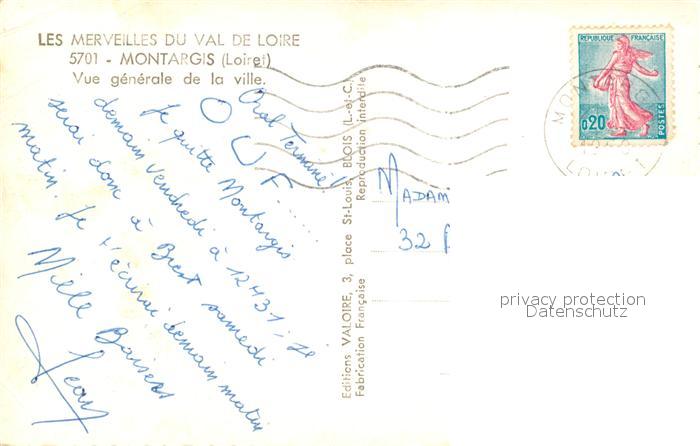 LES MERVEILLES DU VAL DE LOIRE
5701 - MONTARGIS (Loiret)
Vue générale de la ville.
Oral Terminé!!
OUF......
Je quitte Montargis
demain vendredi à 12H31, je
serai donc à Brest samedi
matin. Je t'écrirai demain matin
Mille Baisers
Jean
Editions VALOIRE, 3, place St-Louis, BLOIS (L.-et-C.)
Fabrication Française
Reproduction interdite
REPUBLIQUE FRANÇAISE
0,20
POSTES
MADAM
32
privacy protection
Datenschutz